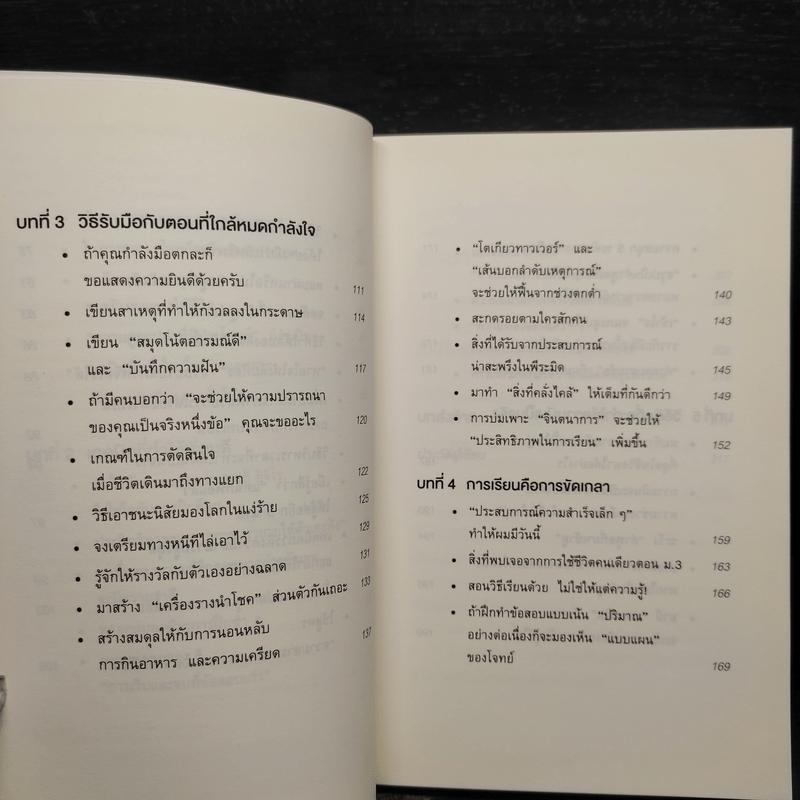 บทที่ 3 วิธีรับมือกับตอนที่ใกล้หมดกำลังใจ
• ถ้าคุณกำลังมือตกละก็
ขอแสดงความยินดีด้วยครับ 111
• เขียนสาเหตุที่ทำให้กังวลลงในกระดาษ 114
• เขียน “สมุดโน้ตอารมณ์ดี”
และ “บันทึกความฝัน” 117
• ถ้ามีคนบอกว่า “จะช่วยให้ความปรารถนา
ของคุณเป็นจริงหนึ่งข้อ” คุณจะขออะไร 120
• เกณฑ์ในการตัดสินใจ
เมื่อชีวิตเดินมาถึงทางแยก 122
• วิธีเอาชนะนิสัยมองโลกในแง่ร้าย 125
• จงเตรียมทางหนีทีไล่เอาไว้ 129
• รู้จักให้รางวัลกับตัวเองอย่างฉลาด 131
• มาสร้าง “เครื่องรางนำโชค” ส่วนตัวกันเถอะ 133
• สร้างสมดุลให้กับการนอนหลับ 137
การกินอาหาร และความเครียด
• “โตเกียวทาวเวอร์” และ
“เส้นบอกลำดับเหตุการณ์”
จะช่วยให้ฟื้นจากช่วงตกต่ำ 140
• สะกดรอยตามใครสักคน 143
• สิ่งที่ได้รับจากประสบการณ์
น่าสะพรึงในพีระมิด 145
• มาทำ “สิ่งที่คลั่งไคล้” ให้เต็มที่กันดีกว่า 149
• การบ่มเพาะ “จินตนาการ” จะช่วยให้
“ประสิทธิภาพในการเรียน” เพิ่มขึ้น 152
บทที่ 4 การเรียนคือการขัดเกลา
• “ประสบการณ์ความสำเร็จเล็ก ๆ”
ทำให้ผมมีวันนี้ 159
• สิ่งที่พบเจอจากการใช้ชีวิตคนเดียวตอน ม.3 163
• สอนวิธีเรียนด้วย ไม่ใช่ให้แต่ความรู้! 166
• ถ้าฝึกทำข้อสอบแบบเน้น “ปริมาณ”
อย่างต่อเนื่องก็จะมองเห็น “แบบแผน”
ของโจทย์ 169